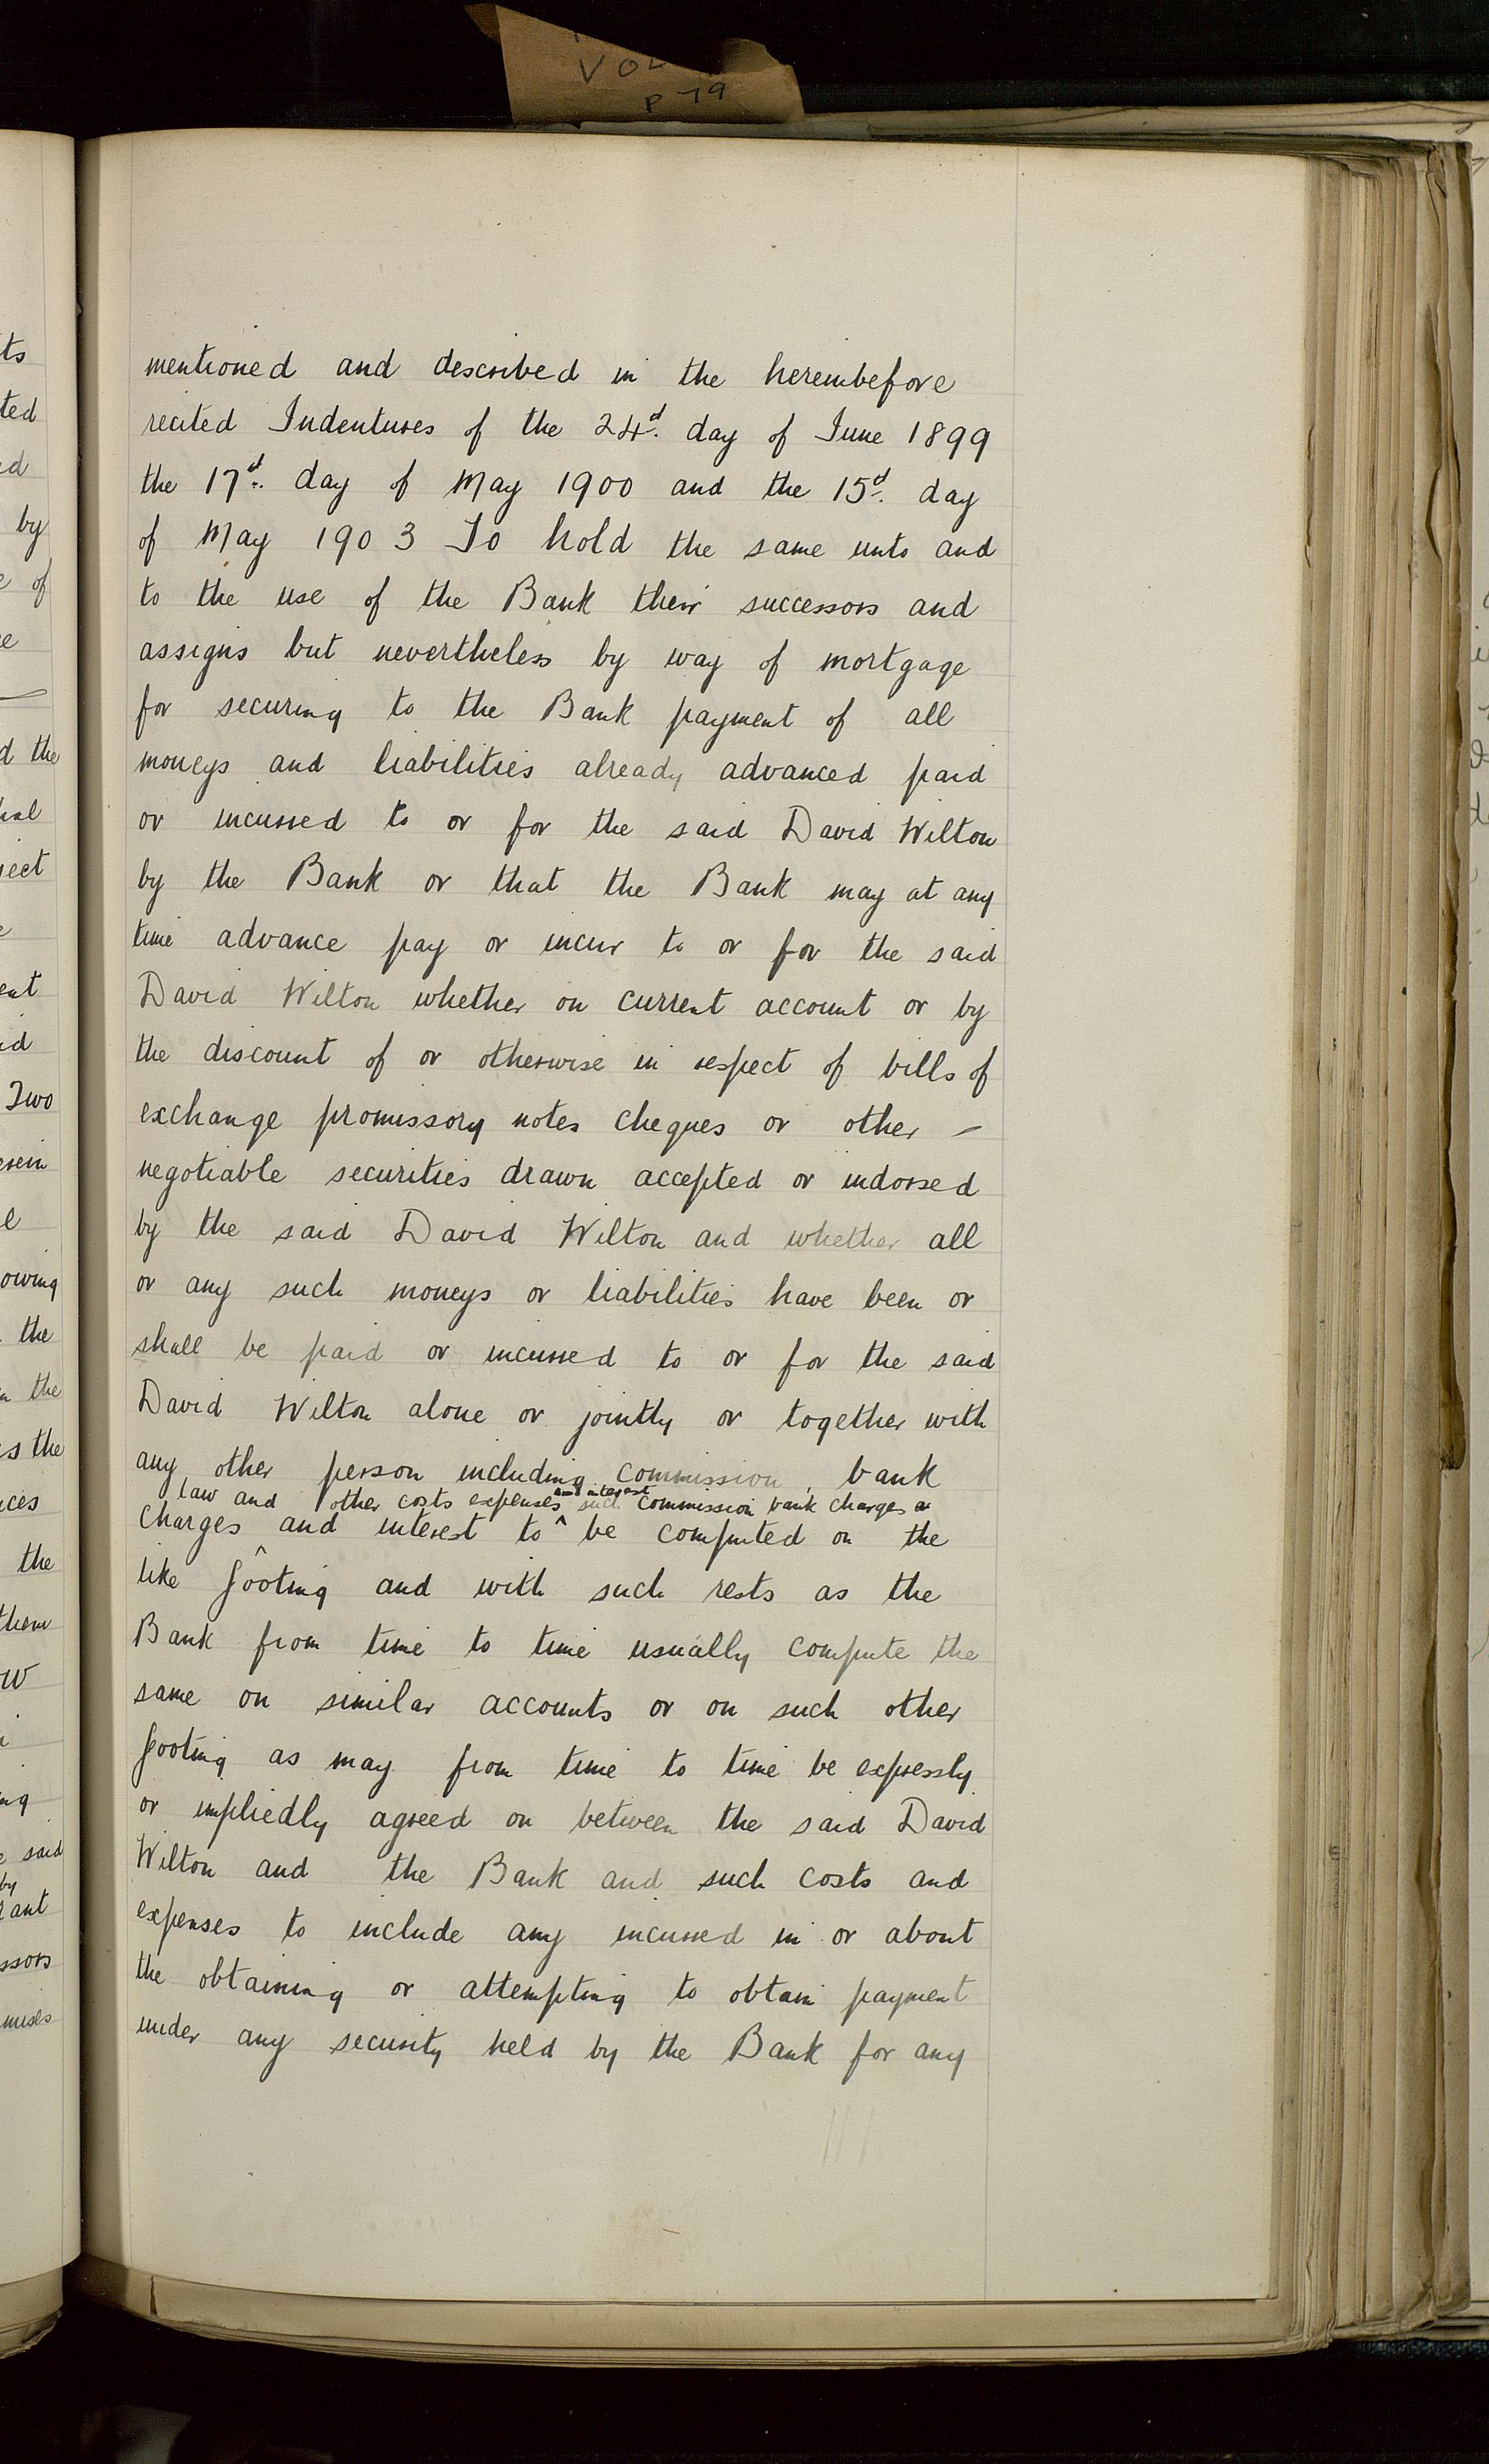 VOL
P 79
mentioned and described in the hereinbefore
recited Indentures of the 24d. day of June 1899
the 17d. day of May 1900 and the 15d. day
of May 1903 To hold the same unto and
to the use of the Bank their successors and
assigns but nevertheless by way of mortgage
for securing to the Bank payment of all
moneys and liabilities already advanced paid
or incurred to or for the said David Wilton
by the Bank or that the Bank may at any
time advance pay or incur to or for the said
David Wilton whether on current account or by
the discount of or otherwise in respect of bills of
exchange promissory notes cheques or other –
negotiable securities drawn accepted or indorsed
by the said David Wilton and whether all
or any such moneys or liabilities have been or
shall be paid or incurred to or for the said
David Wilton alone or jointly or together with
any other person including commission bank
law and other costs expenses and interest such commission bank charges a
charges and interest to ^ be computed on the
like footing and with such rests as the
Bank from time to time usually compute the
same on similar accounts or on such other
footing as may from time to time be expressly
or impliedly agreed on between the said David
Wilton and the Bank and such costs and
expenses to include any incurred in or about
the obtaining or attempting to obtain payment
under any security held by the Bank for any